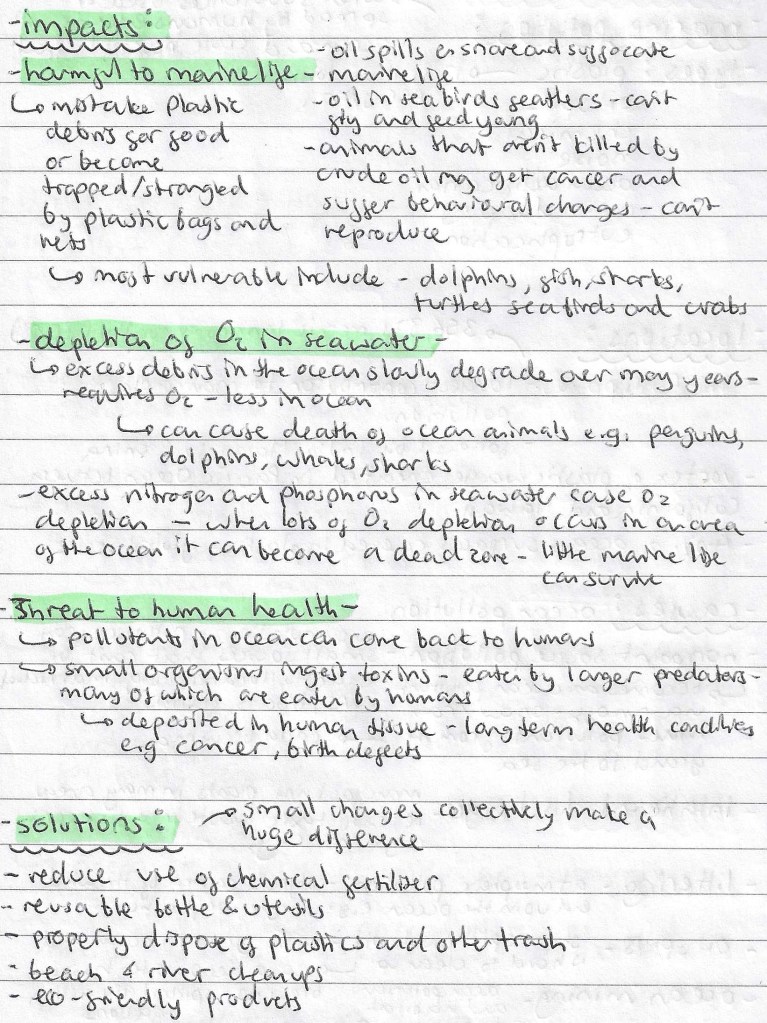 - impacts:
- harmful to marine life -
↳ mistake plastic
debris for food
or become
trapped/strangled
by plastic bags and
nets
- oil spills ensnare and suffocate
marine life
- oil in seabirds feathers - can't
fly and feed young
- animals that aren't killed by
crude oil my get cancer and
suffer behavioural changes - can't
reproduce
↳ most vulnerable include - dolphins, fish, sharks,
turtles seabirds and crabs
- depletion of O₂ in seawater -
↳ excess debris in the ocean slowly degrade over many years -
requires O₂ - less in ocean
↳ can cause death of ocean animals e.g. penguins,
dolphins, whales, sharks
- excess nitrogen and phosphorus in seawater case O₂
depletion - when lots of O₂ depletion occurs in an area
of the ocean it can become a dead zone - little marine life
can survive
- threat to human health -
↳ pollutants in ocean can come back to humans
↳ small organisms ingest toxins - eaten by larger predators -
many of which are eaten by humans
↳ deposited in human tissue - long term health conditions
e.g cancer, birth defects
- solutions: → small changes collectively make a
huge difference
- reduce use of chemical fertiliser
- reusable bottle & utensils
- properly dispose of plastics and other trash
- beach & river cleanups
- eco-friendly products